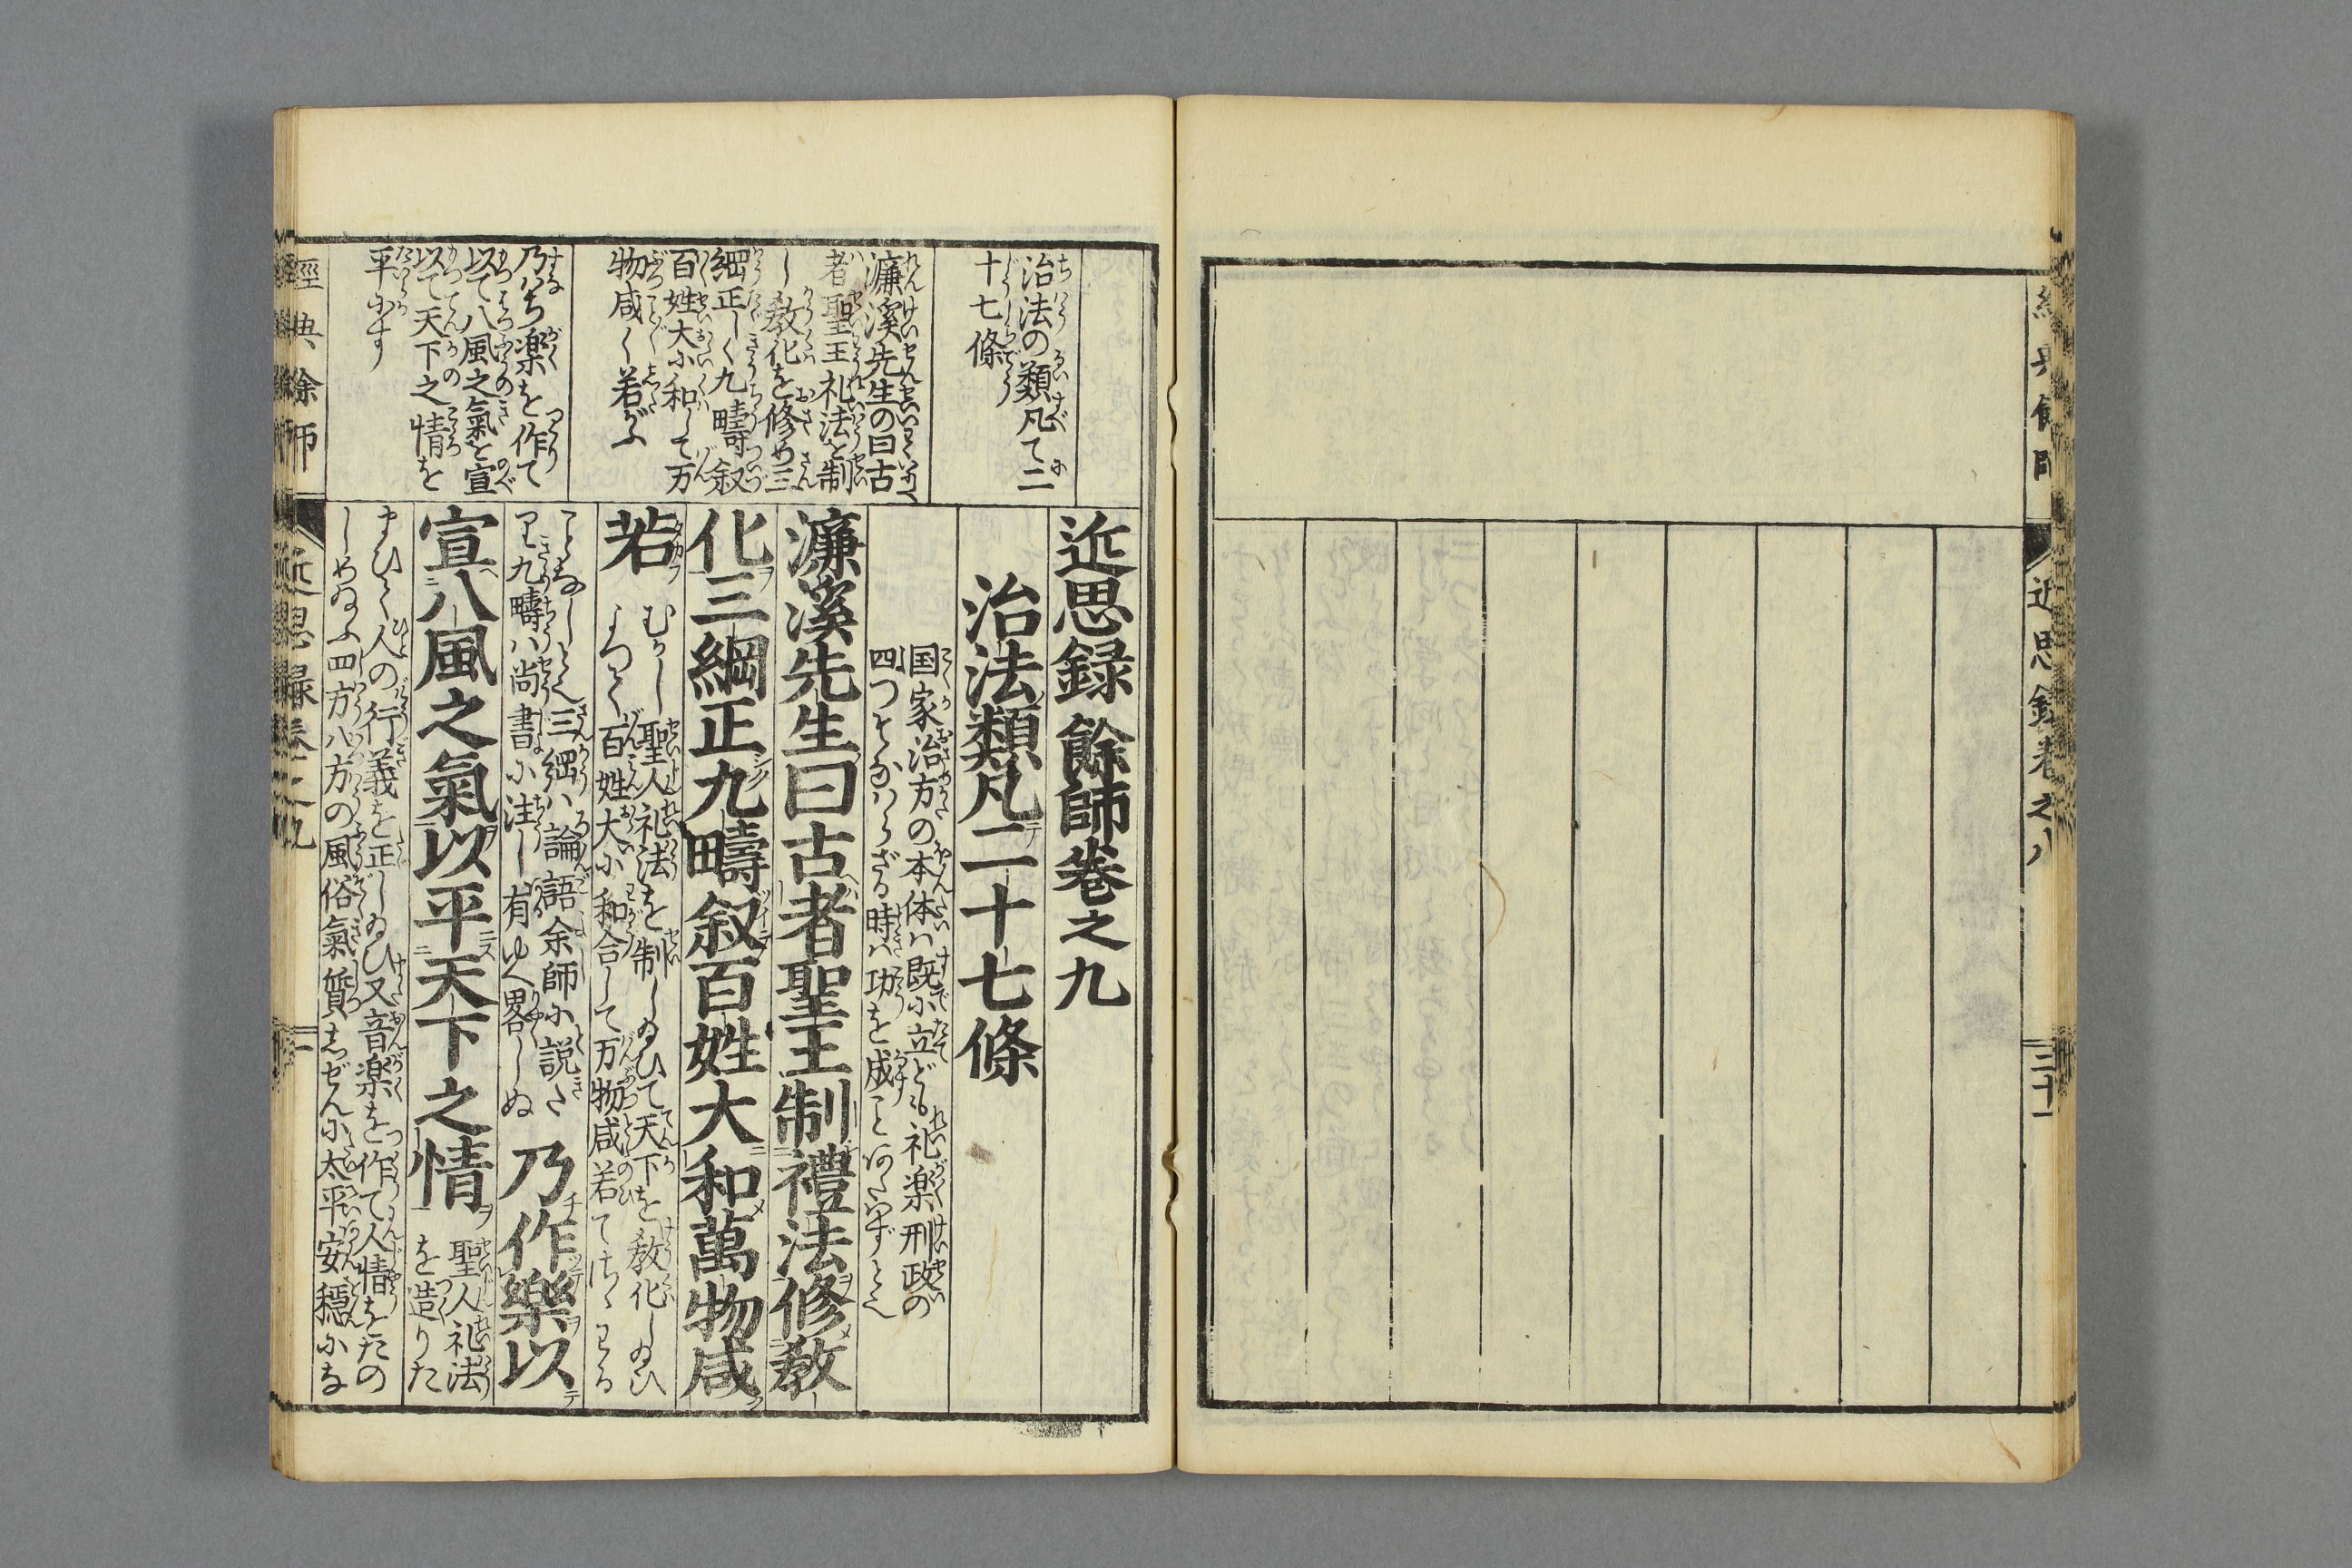 經典餘師
近思録卷之八
三十一
治法の類凡て二
十七條
濂溪先生の曰古
者聖王礼法を制
し教化を修め三
綱正しく九疇叙
百姓大に和して万
物咸く若がふ
乃ハち楽を作て
以て八風之氣を宣
以て天下之情を
平にす
近思録餘師卷之九
治法類凡二十七條
国家治方の本体ハ既に立ども礼楽刑政の
四つそなハらざる時ハ功を成ことあたハずとぞ
濂溪先生曰古者聖王制禮法修教
化三綱正九疇叙百姓大和萬物咸
若
むかし聖人礼法を制し給ひて天下を教化し給ひ
よつて百姓大に和合して万物咸若てさハりある
ことなしとぞ三綱ハ論語余師に説き
又九疇ハ尚書に注し有ゆへ畧しぬ
乃作樂以
宣八風之氣以平天下之情
聖人礼法
を造りた
まひて人の行義を正し給ひ又音楽を作て人情をたの
しめ給ふ四方八方の風俗氣質しぜんに太平安穏にな
經典餘師
近思録卷之九
一